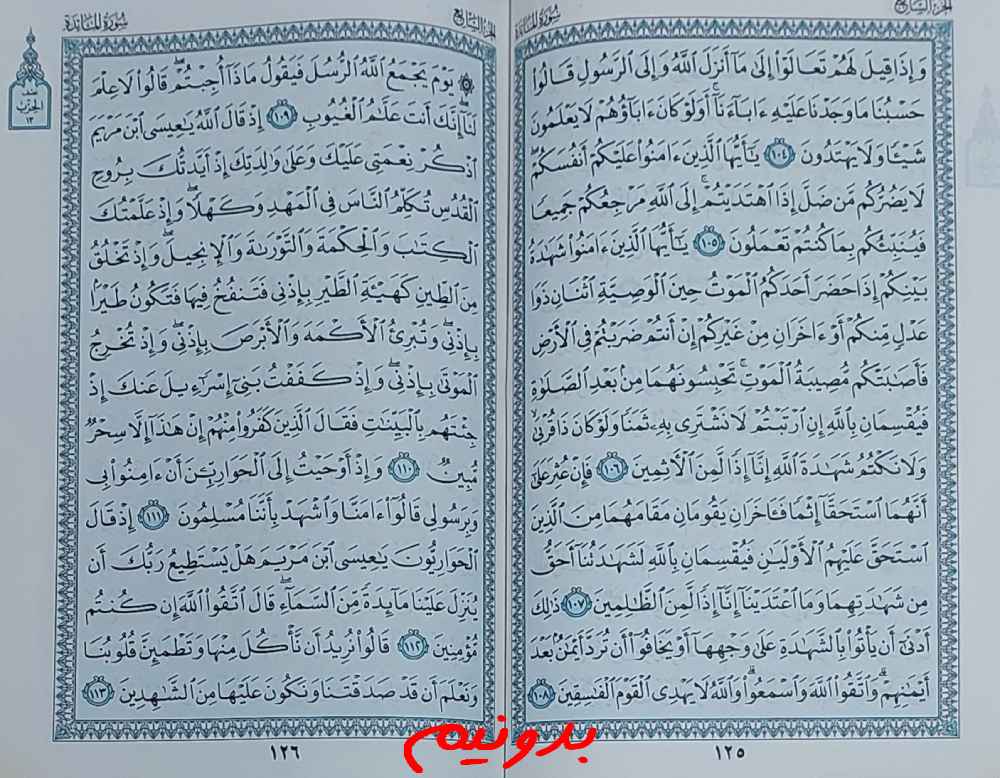 الجزء السابع
سورة المائدة
وَإِذَا قِيلَ لَهُمْ تَعَالَوْا۟ إِلَىٰ مَآ أَنزَلَ ٱللَّهُ وَإِلَى ٱلرَّسُولِ قَالُوا۟
حَسْبُنَا مَا وَجَدْنَا عَلَيْهِ ءَابَآءَنَآ ۚ أَوَلَوْ كَانَ ءَابَآؤُهُمْ لَا يَعْلَمُونَ
شَيْـًٔا وَلَا يَهْتَدُونَ ١٠٤ يَـٰٓأَيُّهَا ٱلَّذِينَ ءَامَنُوا۟ عَلَيْكُمْ أَنفُسَكُمْ ۖ
لَا يَضُرُّكُم مَّن ضَلَّ إِذَا ٱهْتَدَيْتُمْ ۚ إِلَى ٱللَّهِ مَرْجِعُكُمْ جَمِيعًا
فَيُنَبِّئُكُم بِمَا كُنتُمْ تَعْمَلُونَ ١٠٥ يَـٰٓأَيُّهَا ٱلَّذِينَ ءَامَنُوا۟ شَهَـٰدَةُ
بَيْنِكُمْ إِذَا حَضَرَ أَحَدَكُمُ ٱلْمَوْتُ حِينَ ٱلْوَصِيَّةِ ٱثْنَانِ ذَوَا
عَدْلٍ مِّنكُمْ أَوْ ءَاخَرَانِ مِنْ غَيْرِكُمْ إِنْ أَنتُمْ ضَرَبْتُمْ فِى ٱلْأَرْضِ
فَأَصَـٰبَتْكُم مُّصِيبَةُ ٱلْمَوْتِ ۚ تَحْبِسُونَهُمَا مِنۢ بَعْدِ ٱلصَّلَوٰةِ
فَيُقْسِمَانِ بِٱللَّهِ إِنِ ٱرْتَبْتُمْ لَا نَشْتَرِى بِهِۦ ثَمَنًا وَلَوْ كَانَ ذَا قُرْبَىٰ ۙ
وَلَا نَكْتُمُ شَهَـٰدَةَ ٱللَّهِ إِنَّآ إِذًا لَّمِنَ ٱلْـَٔاثِمِينَ ١٠٦ فَإِنْ عُثِرَ عَلَىٰٓ
أَنَّهُمَا ٱسْتَحَقَّآ إِثْمًا فَـَٔاخَرَانِ يَقُومَانِ مَقَامَهُمَا مِنَ ٱلَّذِينَ
ٱسْتَحَقَّ عَلَيْهِمُ ٱلْأَوْلَيَـٰنِ فَيُقْسِمَانِ بِٱللَّهِ لَشَهَـٰدَتُنَآ أَحَقُّ
مِن شَهَـٰدَتِهِمَا وَمَا ٱعْتَدَيْنَآ إِنَّآ إِذًا لَّمِنَ ٱلظَّـٰلِمِينَ ١٠٧ ذَٰلِكَ
أَدْنَىٰٓ أَن يَأْتُوا۟ بِٱلشَّهَـٰدَةِ عَلَىٰ وَجْهِهَآ أَوْ يَخَافُوٓا۟ أَن تُرَدَّ أَيْمَـٰنٌۢ بَعْدَ
أَيْمَـٰنِهِمْ ۗ وَٱتَّقُوا۟ ٱللَّهَ وَٱسْمَعُوا۟ ۗ وَٱللَّهُ لَا يَهْدِى ٱلْقَوْمَ ٱلْفَـٰسِقِينَ ١٠٨
١٢٥
الجزء السابع
سورة المائدة
نصف
الحزب
١٣
۞ يَوْمَ يَجْمَعُ ٱللَّهُ ٱلرُّسُلَ فَيَقُولُ مَاذَآ أُجِبْتُمْ ۖ قَالُوا۟ لَا عِلْمَ
لَنَآ ۖ إِنَّكَ أَنتَ عَلَّـٰمُ ٱلْغُيُوبِ ١٠٩ إِذْ قَالَ ٱللَّهُ يَـٰعِيسَى ٱبْنَ مَرْيَمَ
ٱذْكُرْ نِعْمَتِى عَلَيْكَ وَعَلَىٰ وَٰلِدَتِكَ إِذْ أَيَّدتُّكَ بِرُوحِ
ٱلْقُدُسِ تُكَلِّمُ ٱلنَّاسَ فِى ٱلْمَهْدِ وَكَهْلًا ۖ وَإِذْ عَلَّمْتُكَ
ٱلْكِتَـٰبَ وَٱلْحِكْمَةَ وَٱلتَّوْرَىٰةَ وَٱلْإِنجِيلَ ۖ وَإِذْ تَخْلُقُ
مِنَ ٱلطِّينِ كَهَيْـَٔةِ ٱلطَّيْرِ بِإِذْنِى فَتَنفُخُ فِيهَا فَتَكُونُ طَيْرًۢا
بِإِذْنِى ۖ وَتُبْرِئُ ٱلْأَكْمَهَ وَٱلْأَبْرَصَ بِإِذْنِى ۖ وَإِذْ تُخْرِجُ
ٱلْمَوْتَىٰ بِإِذْنِى ۖ وَإِذْ كَفَفْتُ بَنِىٓ إِسْرَٰٓءِيلَ عَنكَ إِذْ
جِئْتَهُم بِٱلْبَيِّنَـٰتِ فَقَالَ ٱلَّذِينَ كَفَرُوا۟ مِنْهُمْ إِنْ هَـٰذَآ إِلَّا سِحْرٌ
مُّبِينٌ ١١٠ وَإِذْ أَوْحَيْتُ إِلَى ٱلْحَوَارِيِّـۧنَ أَنْ ءَامِنُوا۟ بِى
وَبِرَسُولِى قَالُوٓا۟ ءَامَنَّا وَٱشْهَدْ بِأَنَّنَا مُسْلِمُونَ ١١١ إِذْ قَالَ
ٱلْحَوَارِيُّونَ يَـٰعِيسَى ٱبْنَ مَرْيَمَ هَلْ يَسْتَطِيعُ رَبُّكَ أَن
يُنَزِّلَ عَلَيْنَا مَآئِدَةً مِّنَ ٱلسَّمَآءِ ۖ قَالَ ٱتَّقُوا۟ ٱللَّهَ إِن كُنتُم
مُّؤْمِنِينَ ١١٢ قَالُوا۟ نُرِيدُ أَن نَّأْكُلَ مِنْهَا وَتَطْمَئِنَّ قُلُوبُنَا
وَنَعْلَمَ أَن قَدْ صَدَقْتَنَا وَنَكُونَ عَلَيْهَا مِنَ ٱلشَّـٰهِدِينَ ١١٣
١٢٦
بدونیم